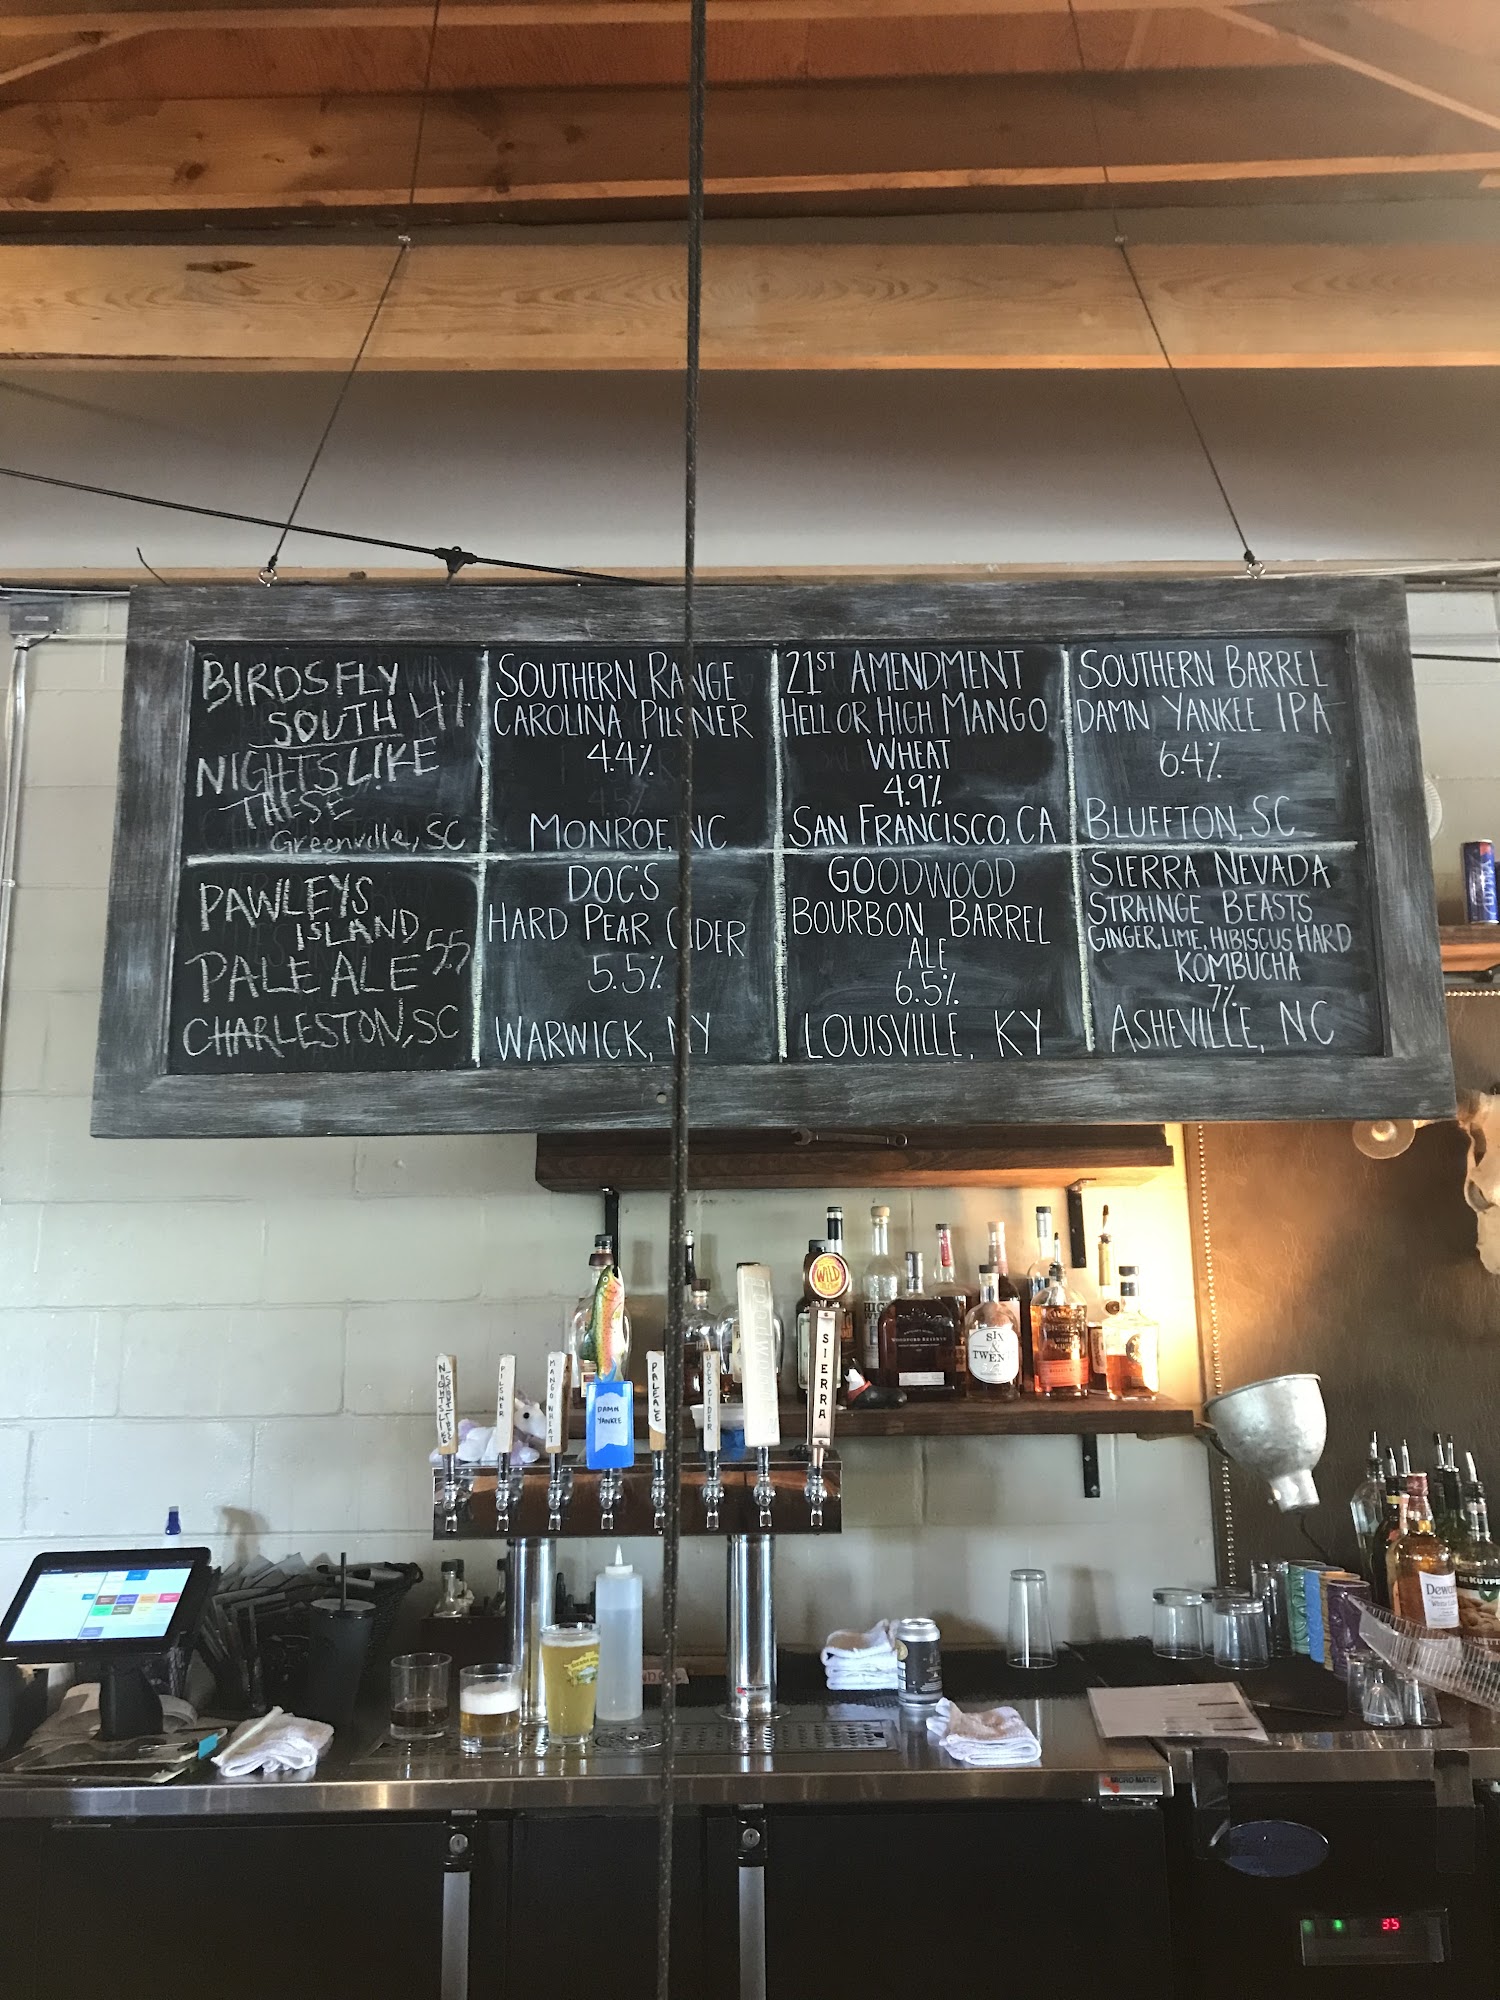 BIRDS FLY
SOUTH 4.1
NIGHTS LIKE
THESE
Greenville, SC
SOUTHERN RANGE
CAROLINA PILSNER
4.4%
MONROE, NC
21ST AMENDMENT
HELL OR HIGH MANGO
WHEAT
4.9%
SAN FRANCISCO, CA
SOUTHERN BARREL
DAMN YANKEE IPA
6.4%
BLUFFTON, SC
PAWLEYS
ISLAND
PALE ALE 5.5
CHARLESTON, SC
DOC'S
HARD PEAR CIDER
5.5%
WARWICK, NY
GOODWOOD
BOURBON BARREL
ALE
6.5%
LOUISVILLE, KY
SIERRA NEVADA
STRAINGE BEASTS
GINGER, LIME, HIBISCUS HARD
KOMBUCHA
7%
ASHEVILLE, NC
PILSNER
MANGO WHEAT
DAMN
YANKEE
PALE ALE
DOCS CIDER
goodwood
WILD
SIERRA
WOODFORD RESERVE
SIX
&
TWENTY
Dewar's
DE KUYPER
MICRO MATIC
35